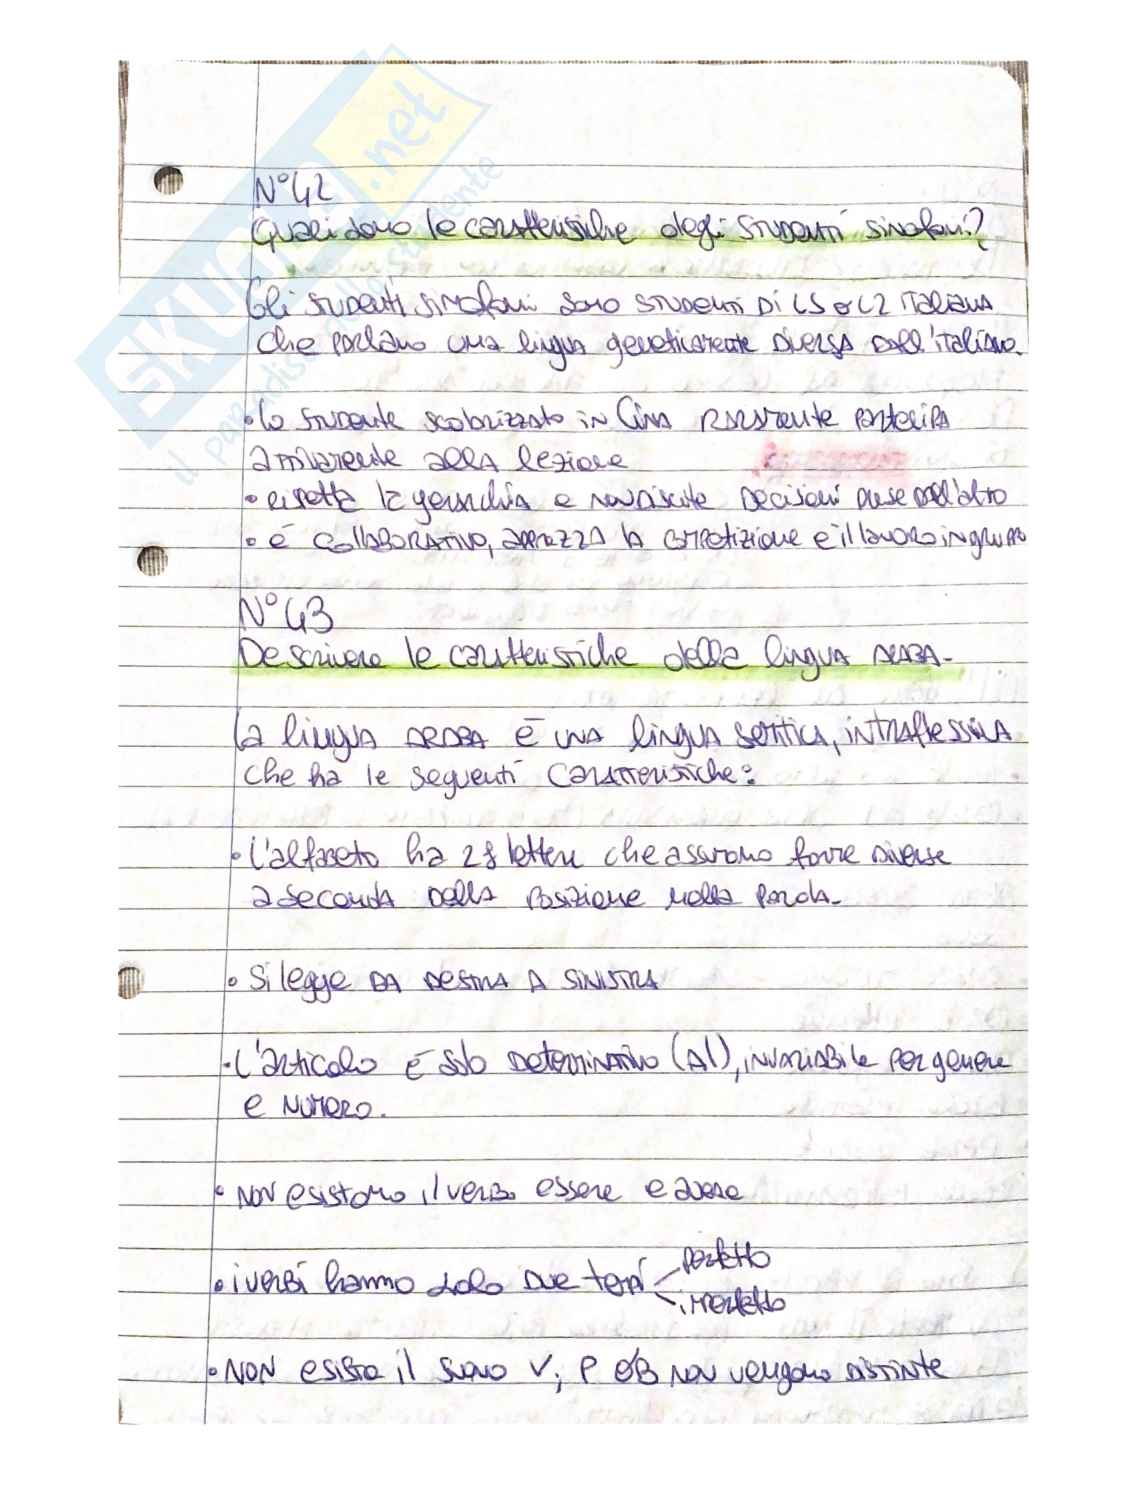 SKUOLA.net
il paradiso dello studente
N° 42
Quali sono le caratteristiche degli studenti sinofoni?
Gli studenti sinofoni sono studenti di LS o L2 italiana
che parlano una lingua geneticamente diversa dall'italiano.
• Lo studente scolarizzato in Cina raramente partecipa
attivamente alla lezione
• rispetta la gerarchia e non discute decisioni prese dall'alto
• è collaborativo, apprezza la competizione e il lavoro in gruppo
N° 43
Descrivere le caratteristiche della lingua araba-
La lingua araba è una lingua semitica, intraflessiva
che ha le seguenti caratteristiche:
• L'alfabeto ha 28 lettere che assumono forme diverse
a seconda della posizione nella parola-
• Si legge da destra a sinistra
• L'articolo è solo determinativo (al), invariabile per genere
e numero.
• Non esistono il verbo essere e avere
• i verbi hanno solo due tempi perfetto
imperfetto
• NON esiste il suono V; P e B non vengono distinte